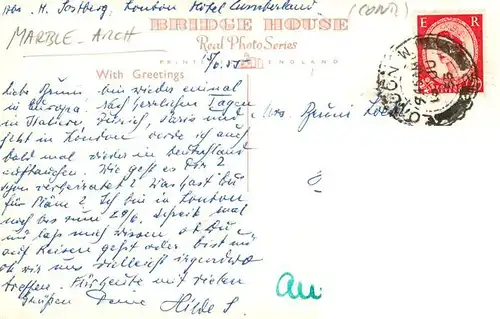 Abs. H. Sostberg, London Hotel Cumberland
(CONT.)
MARBLE-ARCH
BRIDGE HOUSE
Real Photo Series
PRINTED ENGLAND
E R
With Greetings
Liebe Bruni bin wieder einmal
in Europa. Nach herrlichen Tagen
in Italien, Zürich, Paris und
jetzt in London werde ich auch
bald mal wieder in Deutschland
auftauchen. Wie geht es Dir?
Schon verheiratet? Was hast Du
für Pläne? Ich bin in London
noch bis zum 20/6. Schreib mal
und lass mich wissen ob Du
auf Reisen gehst oder bist und
ob wir uns vielleicht irgendwo
treffen. Für heute mit vielen
Grüßen Deine Hilde S.
Mrs. Bruni
An